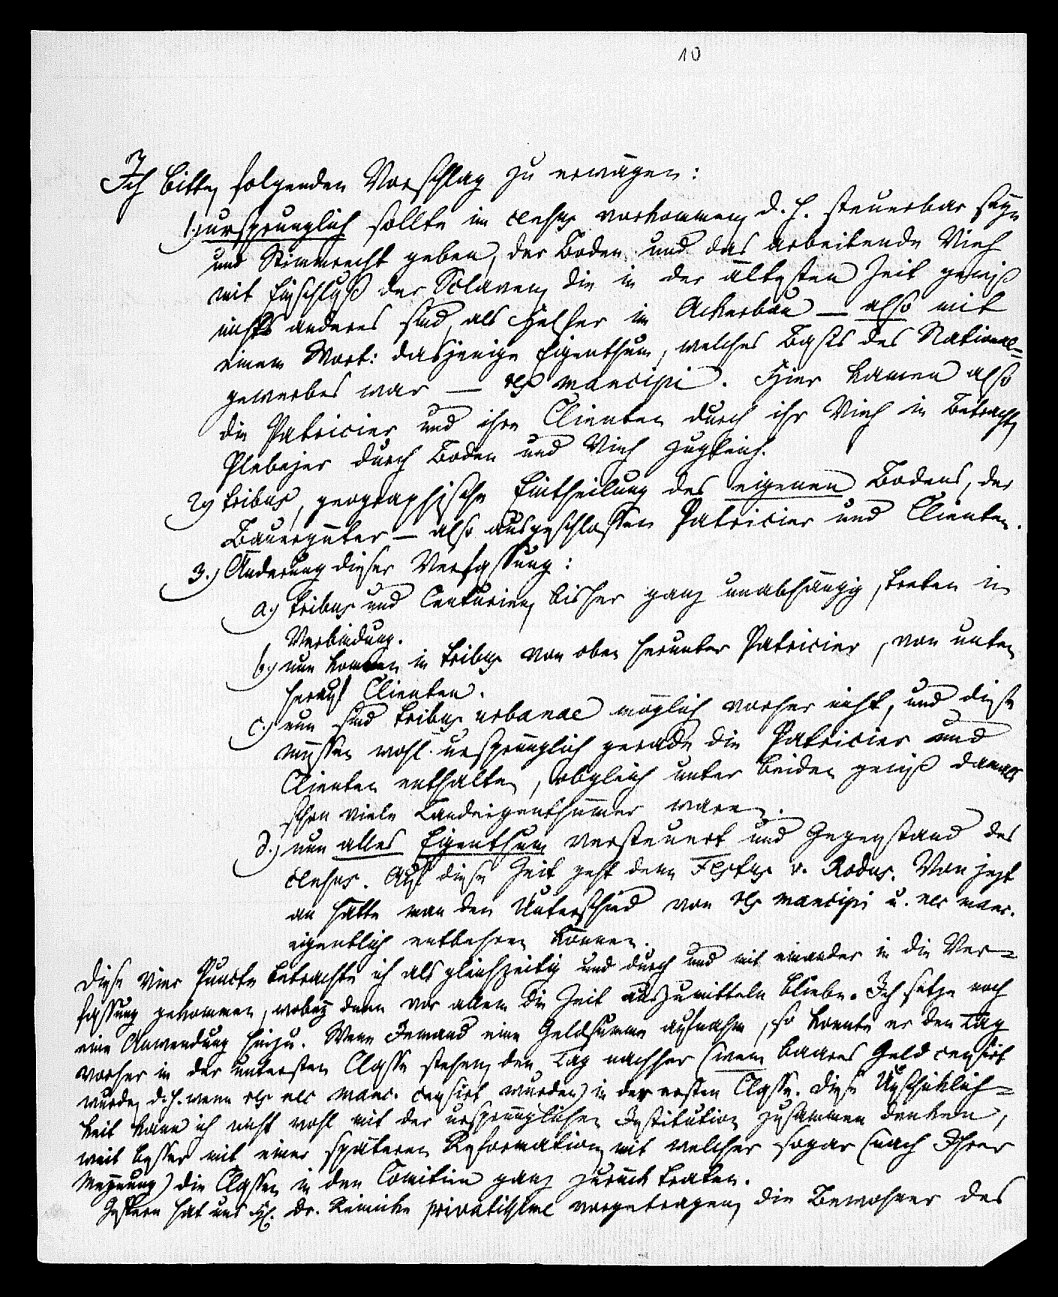 10
Ich bitte folgenden Vorschlag zu erwägen:
1.) ursprünglich sollte im census vorkommen, d. h. steuerbar seyn
und Stimmrecht geben, der Boden und das arbeitende Vieh
mit Einschluß der Sclaven, die in der ältesten Zeit gewiß
nichts anderes sind, als Helfer im Ackerbau — also mit
einem Wort: dasjenige Eigenthum, welches Basis des National-
gewerbes war — res mancipi. Hier kamen also
die Patricier und ihre Clienten durch ihr Vieh in Betracht,
Plebejer durch Boden und Vieh zugleich.
2.) tribus, geographische Eintheilung des eigenen Bodens, der
Bauergüter — also ausgeschlossen Patricier und Clienten.
3.) Änderung dieser Verfassung:
a.) tribus und Centurien, bisher ganz unabhängig, treten in
Verbindung.
b.) nun kommen in tribus von oben herunter Patricier, von unten
herauf Clienten.
c.) nun sind tribus urbanae möglich vorher nicht, und diese
müssen wohl ursprünglich gerade die Patricier und
Clienten enthalten, obgleich unter beiden gewiß damals
schon viele Landeigenthümer waren.
d.) nun alles Eigenthum versteuert und Gegenstand des
census. Auf diese Zeit geht denn Festus v. Rodus. Von jetzt
an hätte man den Unterschied von res mancipi u. nec manc.
eigentlich entbehren können.
Diese vier Puncte betrachte ich als gleichzeitig und durch und mit einander in die Ver-
fassung gekommen, wobey denn vor allem die Zeit auszumitteln bliebe. Ich setze noch
eine Anwendung hinzu. Wenn Jemand eine Geldsumme aufnahm, so konnte er den Tag
vorher in der untersten Classe stehen, den Tag nachher (wenn baares Geld censirt
wurde, d. h. wenn res nec manc. censirt wurden) in der ersten Classe. Diese Unschicklich-
keit kann ich nicht wohl mit der ursprünglichen Institution zusammen denken,
weit besser mit einer späteren Reformation, mit welcher sogar (nach Ihrer
Meynung) die Classen in den Comitien ganz zurück traten.
Gestern hat uns H. Dr. Reinicke privatissime vorgetragen, die Bewohner des